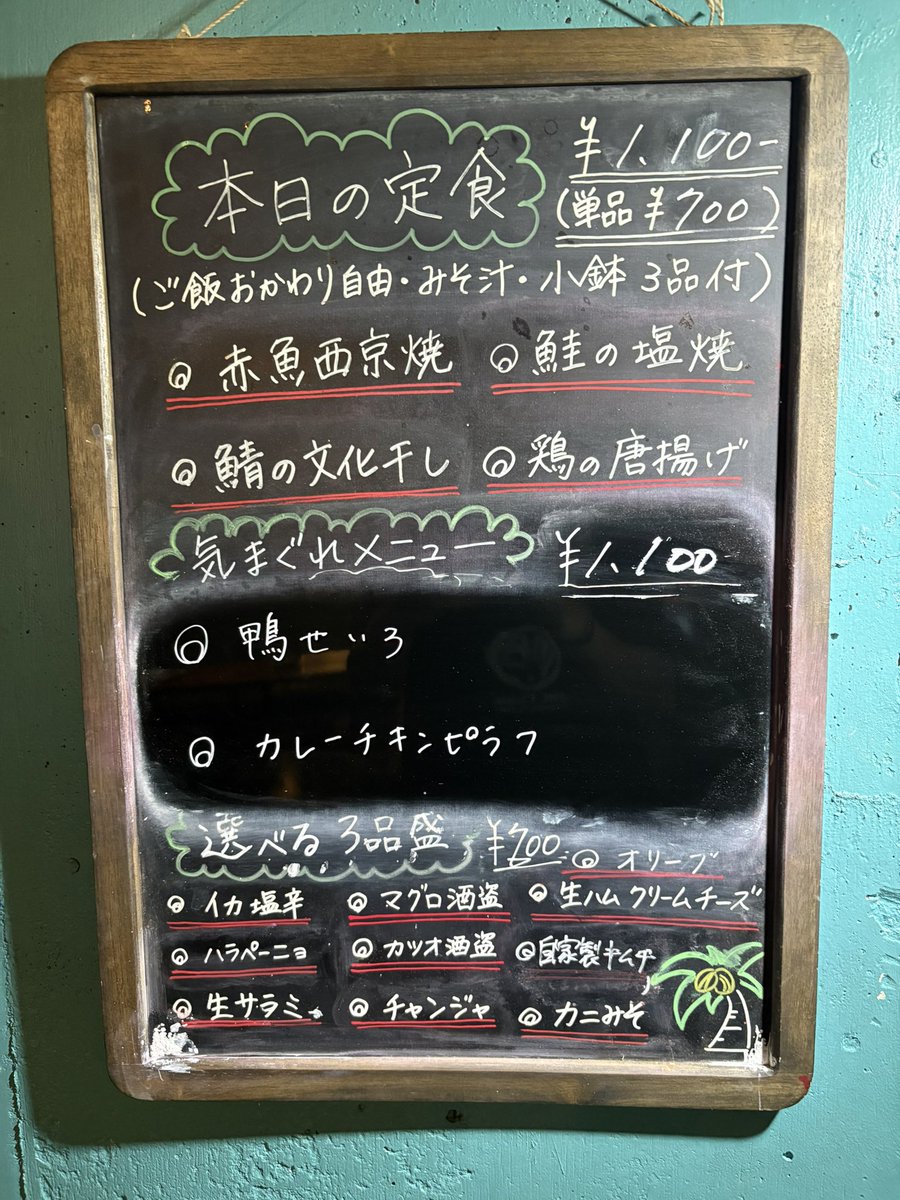 本日の定食 ¥1,100-
(単品¥700)
(ご飯おかわり自由・みそ汁・小鉢3品付)
◎ 赤魚西京焼 ◎ 鮭の塩焼
◎ 鯖の文化干し ◎ 鶏の唐揚げ
気まぐれメニュー ¥1,100
◎ 鴨せいろ
◎ カレーチキンピラフ
選べる3品盛 ¥700 ◎ オリーブ
◎ イカ塩辛 ◎ マグロ酒盗 ◎ 生ハムクリームチーズ
◎ ハラペーニョ ◎ カツオ酒盗 ◎ 自家製キムチ
◎ 生サラミ ◎ チャンジャ ◎ カニみそ